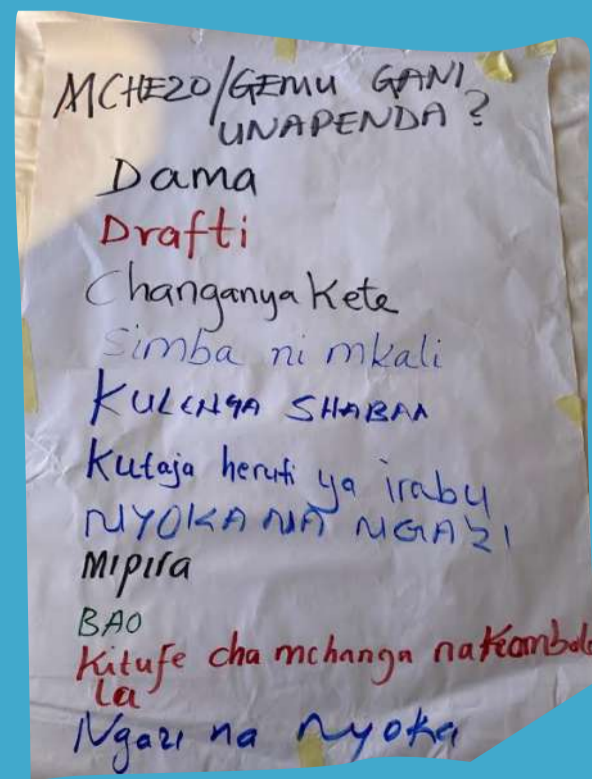 MCHEZO/GEMU GANI
UNAPENDA?
Dama
Drafti
Changanya Kete
Simba ni mkali
KULENGA SHABAA
Kutaja herufi ya irabu
NYOKA NA NGAZI
Mipira
BAO
Kitufe cha mchanga na
la
Ngazi na Nyoka